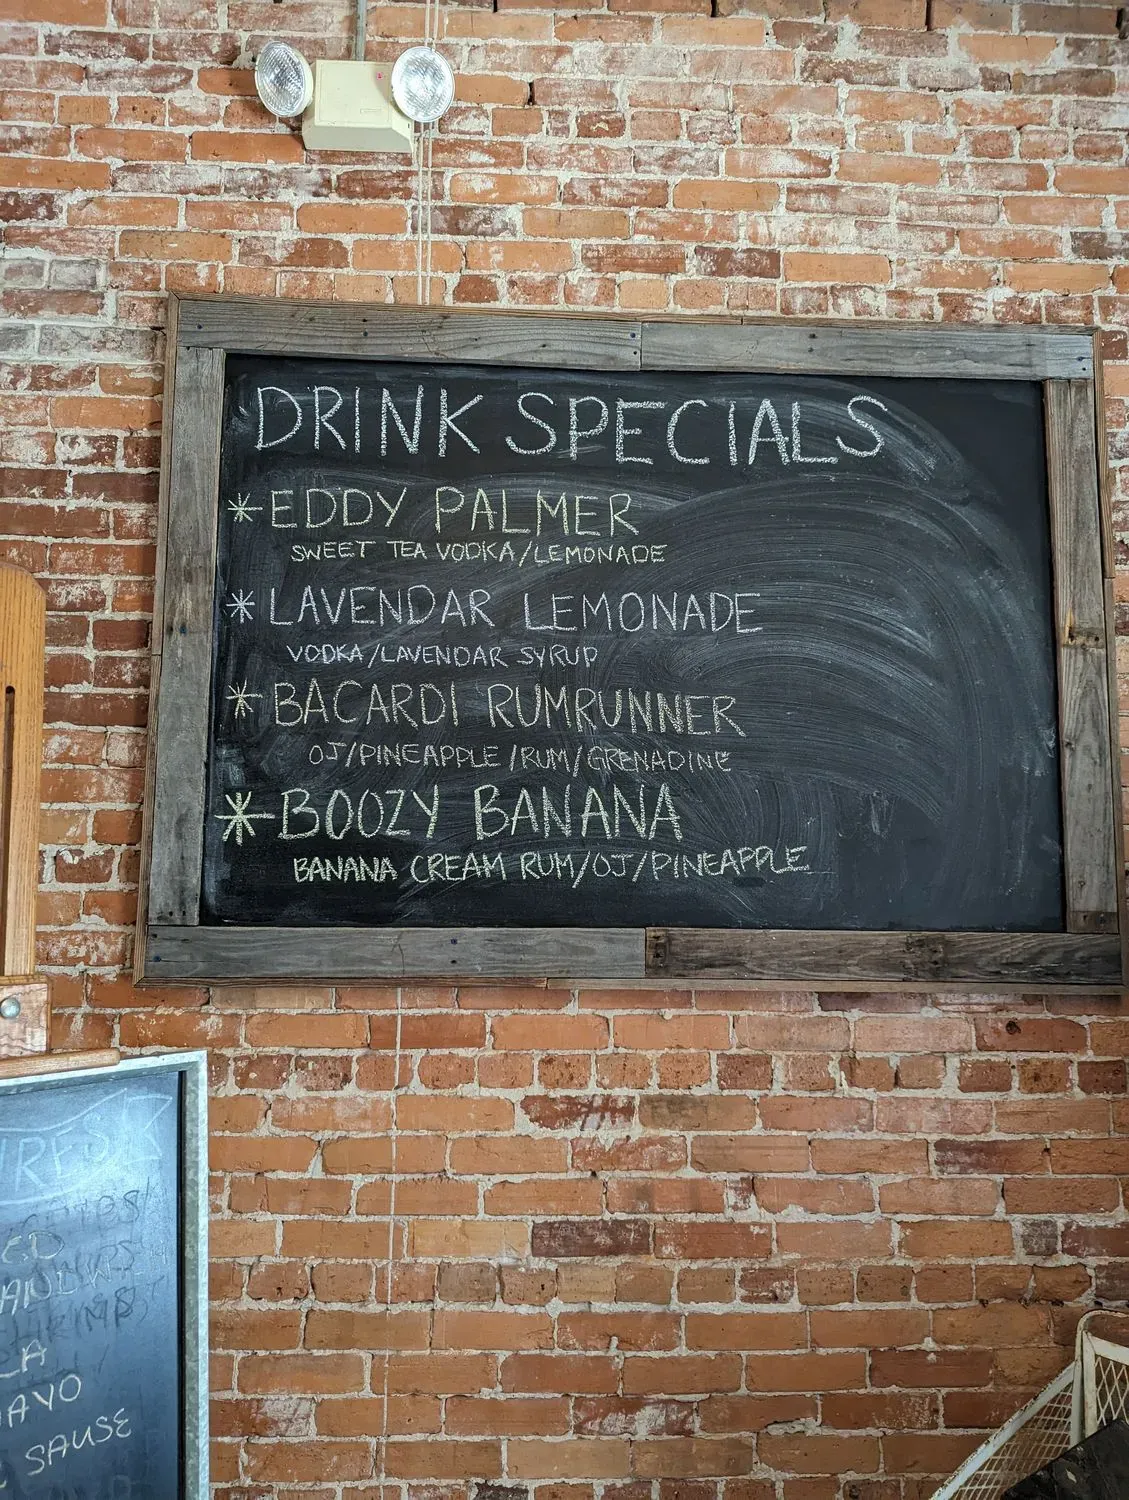 DRINK SPECIALS
* EDDY PALMER
SWEET TEA VODKA/LEMONADE
* LAVENDAR LEMONADE
VODKA/LAVENDAR SYRUP
* BACARDI RUMRUNNER
OJ/PINEAPPLE/RUM/GRENADINE
* BOOZY BANANA
BANANA CREAM RUM/OJ/PINEAPPLE
SAUSE